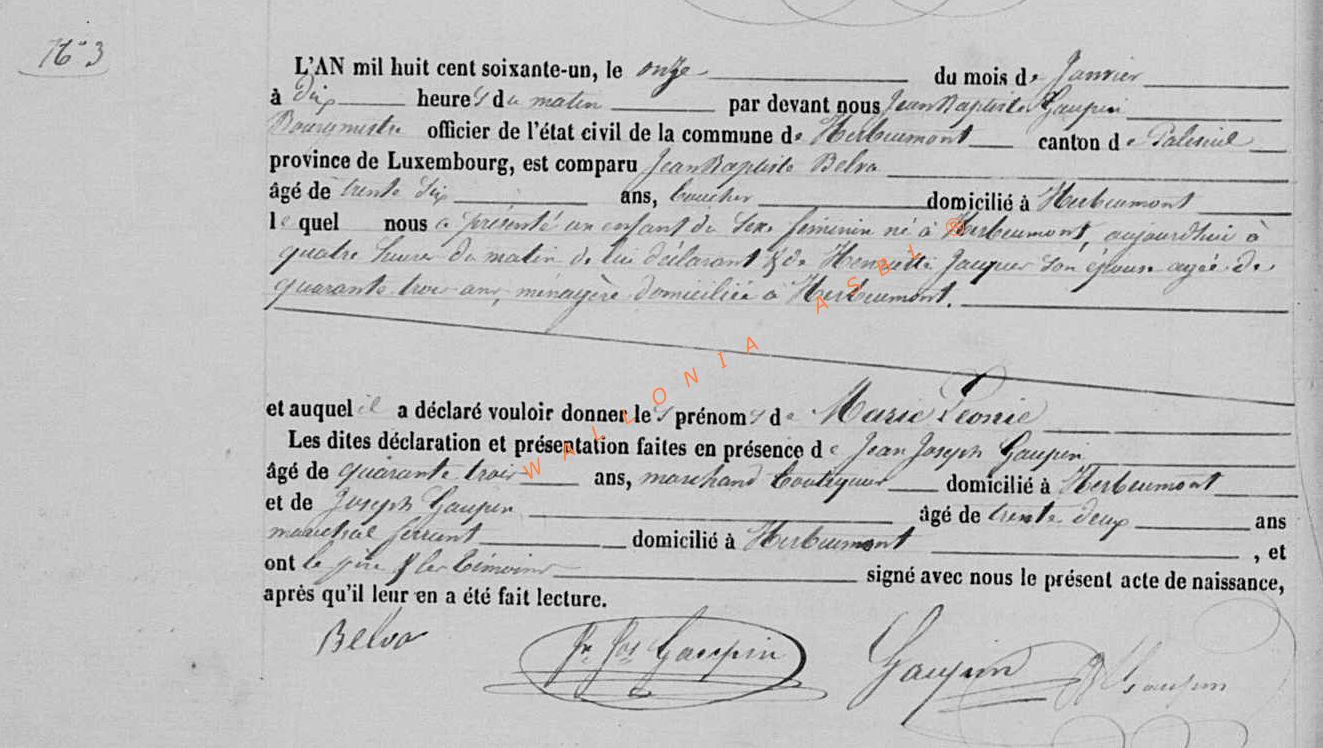 N° 3
L'AN mil huit cent soixante-un, le onze du mois de Janvier
à dix heures du matin par devant nous Jean Baptiste Gaupin
Bourgmestre officier de l'état civil de la commune de Herbeumont canton de Paliseul
province de Luxembourg, est comparu Jean Baptiste Belva
âgé de trente six ans, boucher domicilié à Herbeumont
lequel nous a présenté un enfant du sexe féminin né à Herbeumont, aujourdhui à
quatre heures du matin de lui déclarant & de Henriette Jacques son épouse agée de
quarante trois ans, ménagère domiciliée à Herbeumont.
et auquel il a déclaré vouloir donner les prénoms de Marie Léonie
Les dites déclaration et présentation faites en présence de Jean Joseph Gaupin
âgé de quarante trois ans, marchand boutiquier domicilié à Herbeumont
et de Joseph Gaupin âgé de trente deux ans
maréchal ferrant domicilié à Herbeumont , et
ont le père & les témoins signé avec nous le présent acte de naissance,
après qu'il leur en a été fait lecture.
Belva Jn Jos Gaupin Gaupin Gaupin
WALLONIA ASBL ®